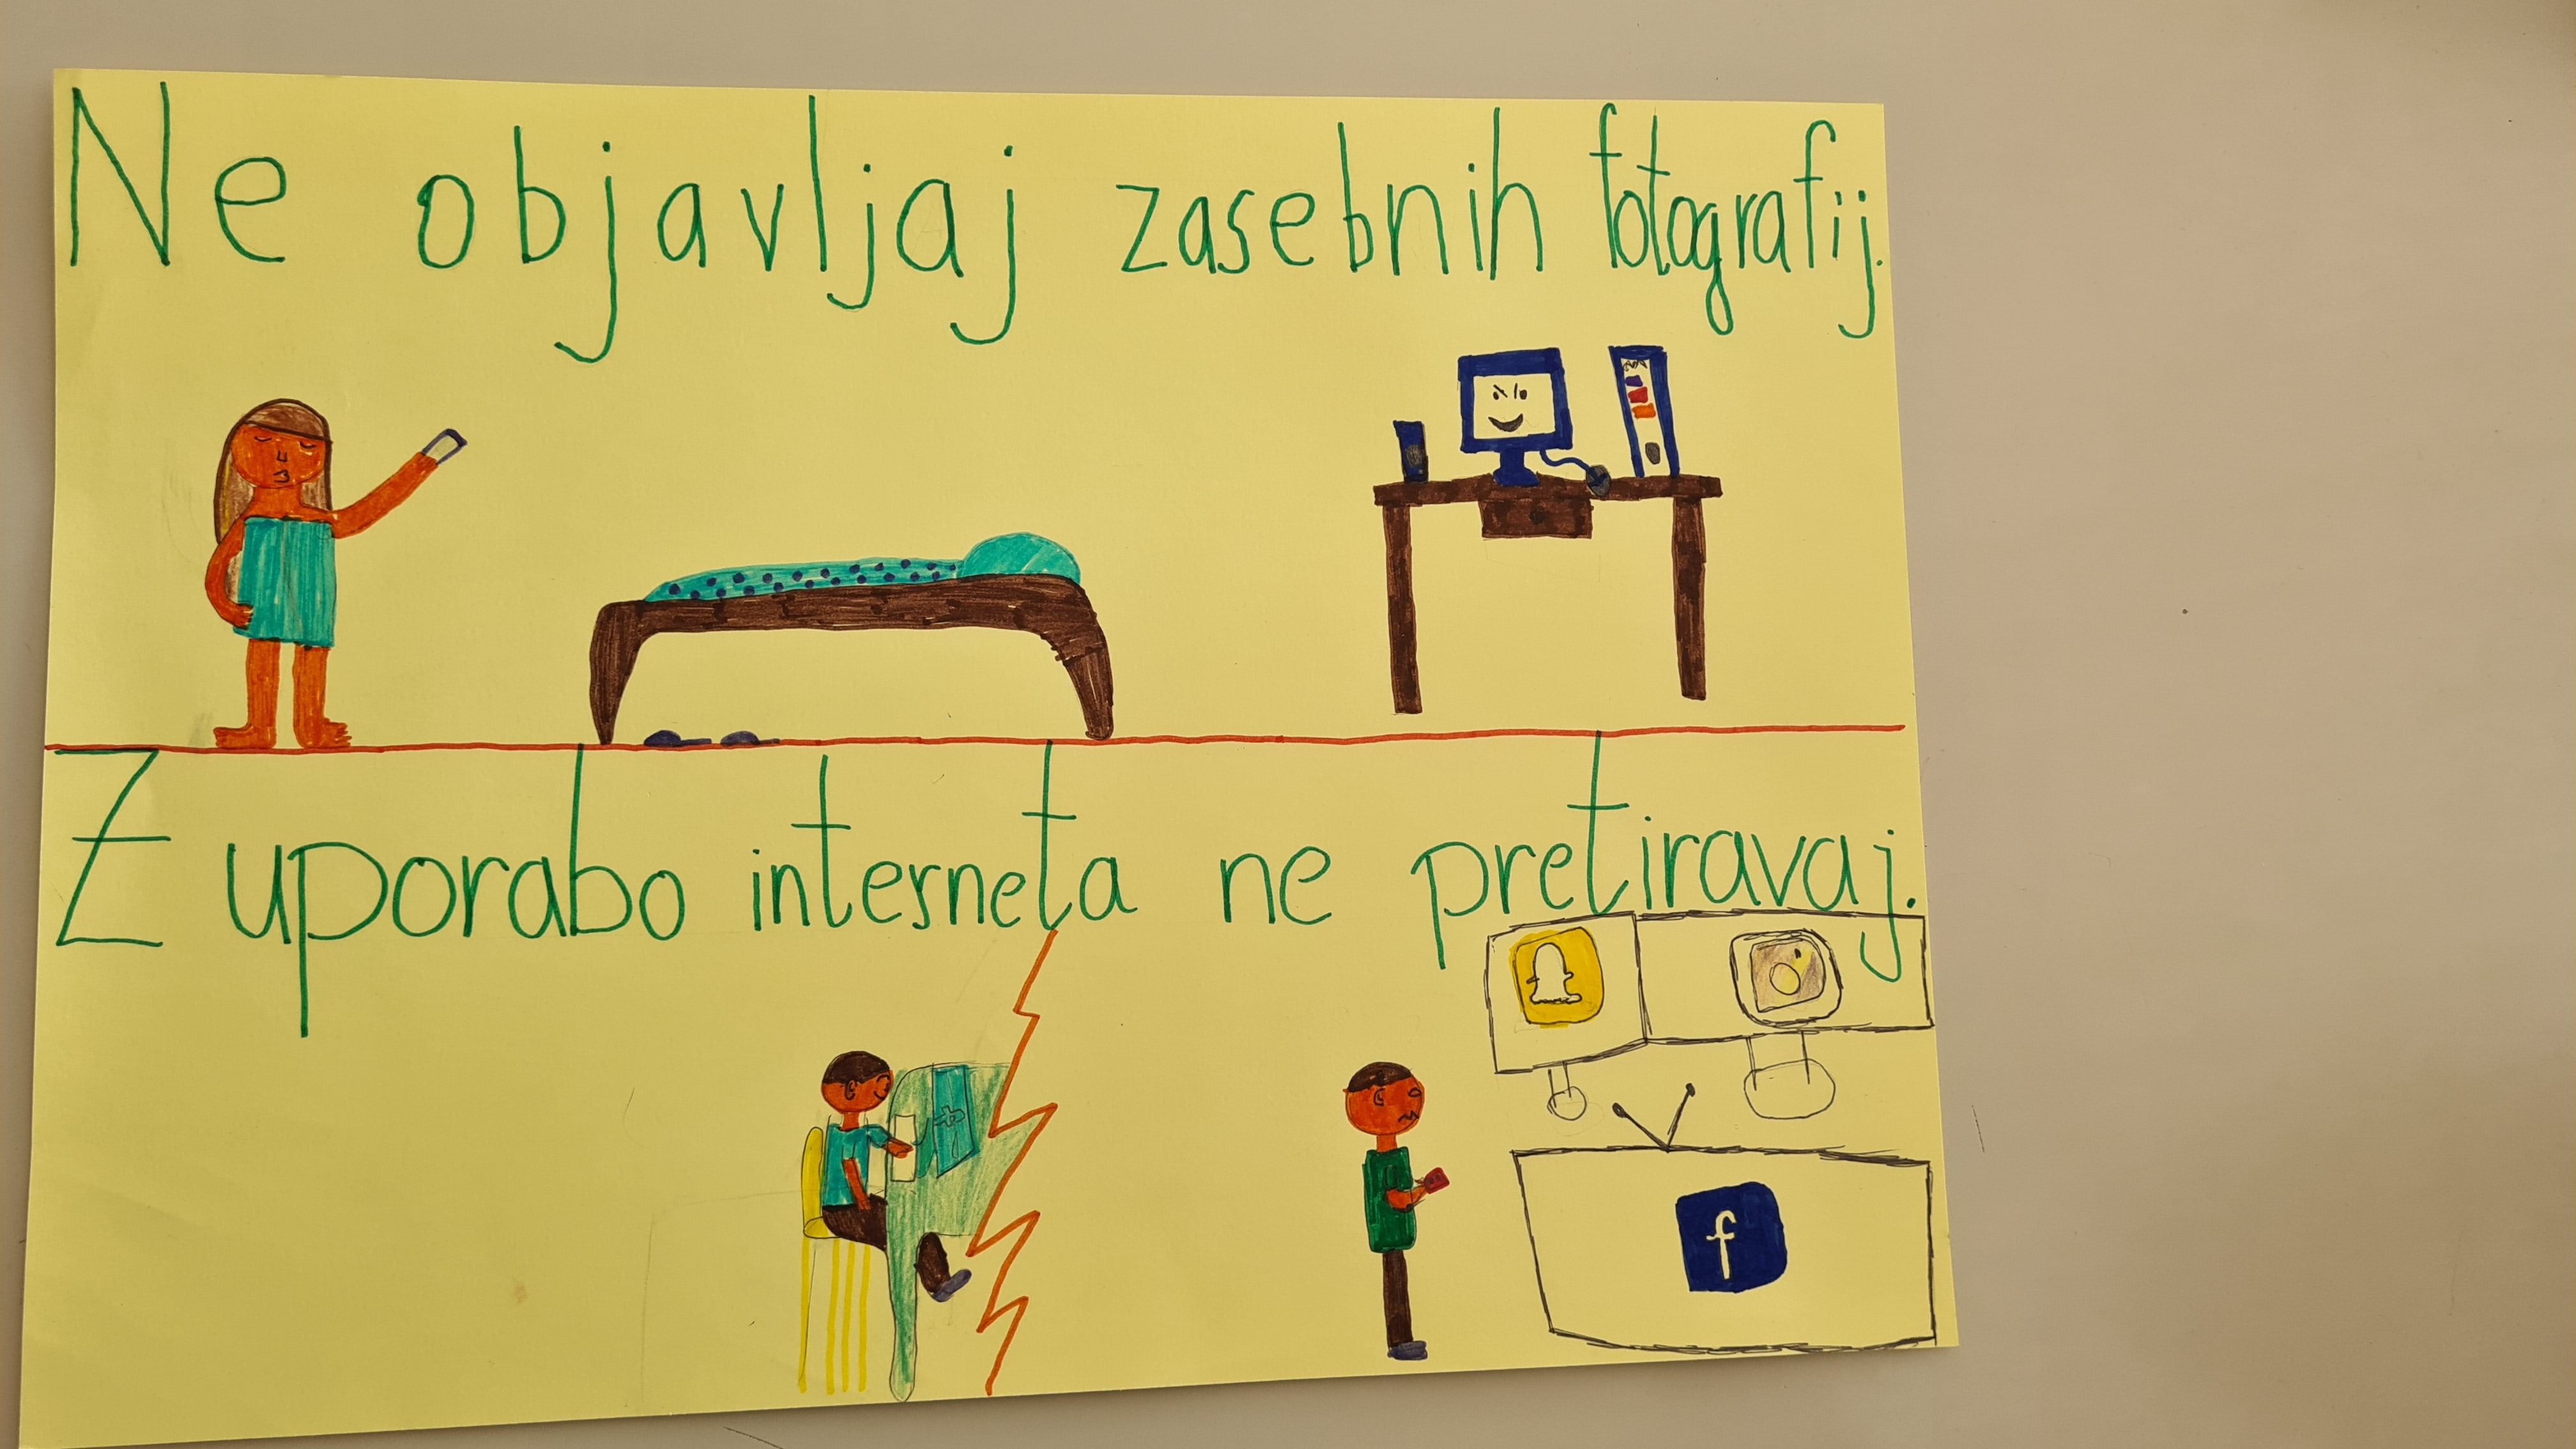 Ne objavljaj zasebnih fotografij.
Z uporabo interneta ne pretiravaj.
f